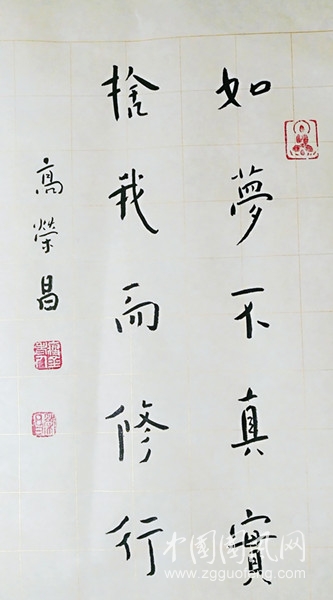 如夢不真實
捨我而修行
高榮昌
中國國風网
www.zgguofeng.com